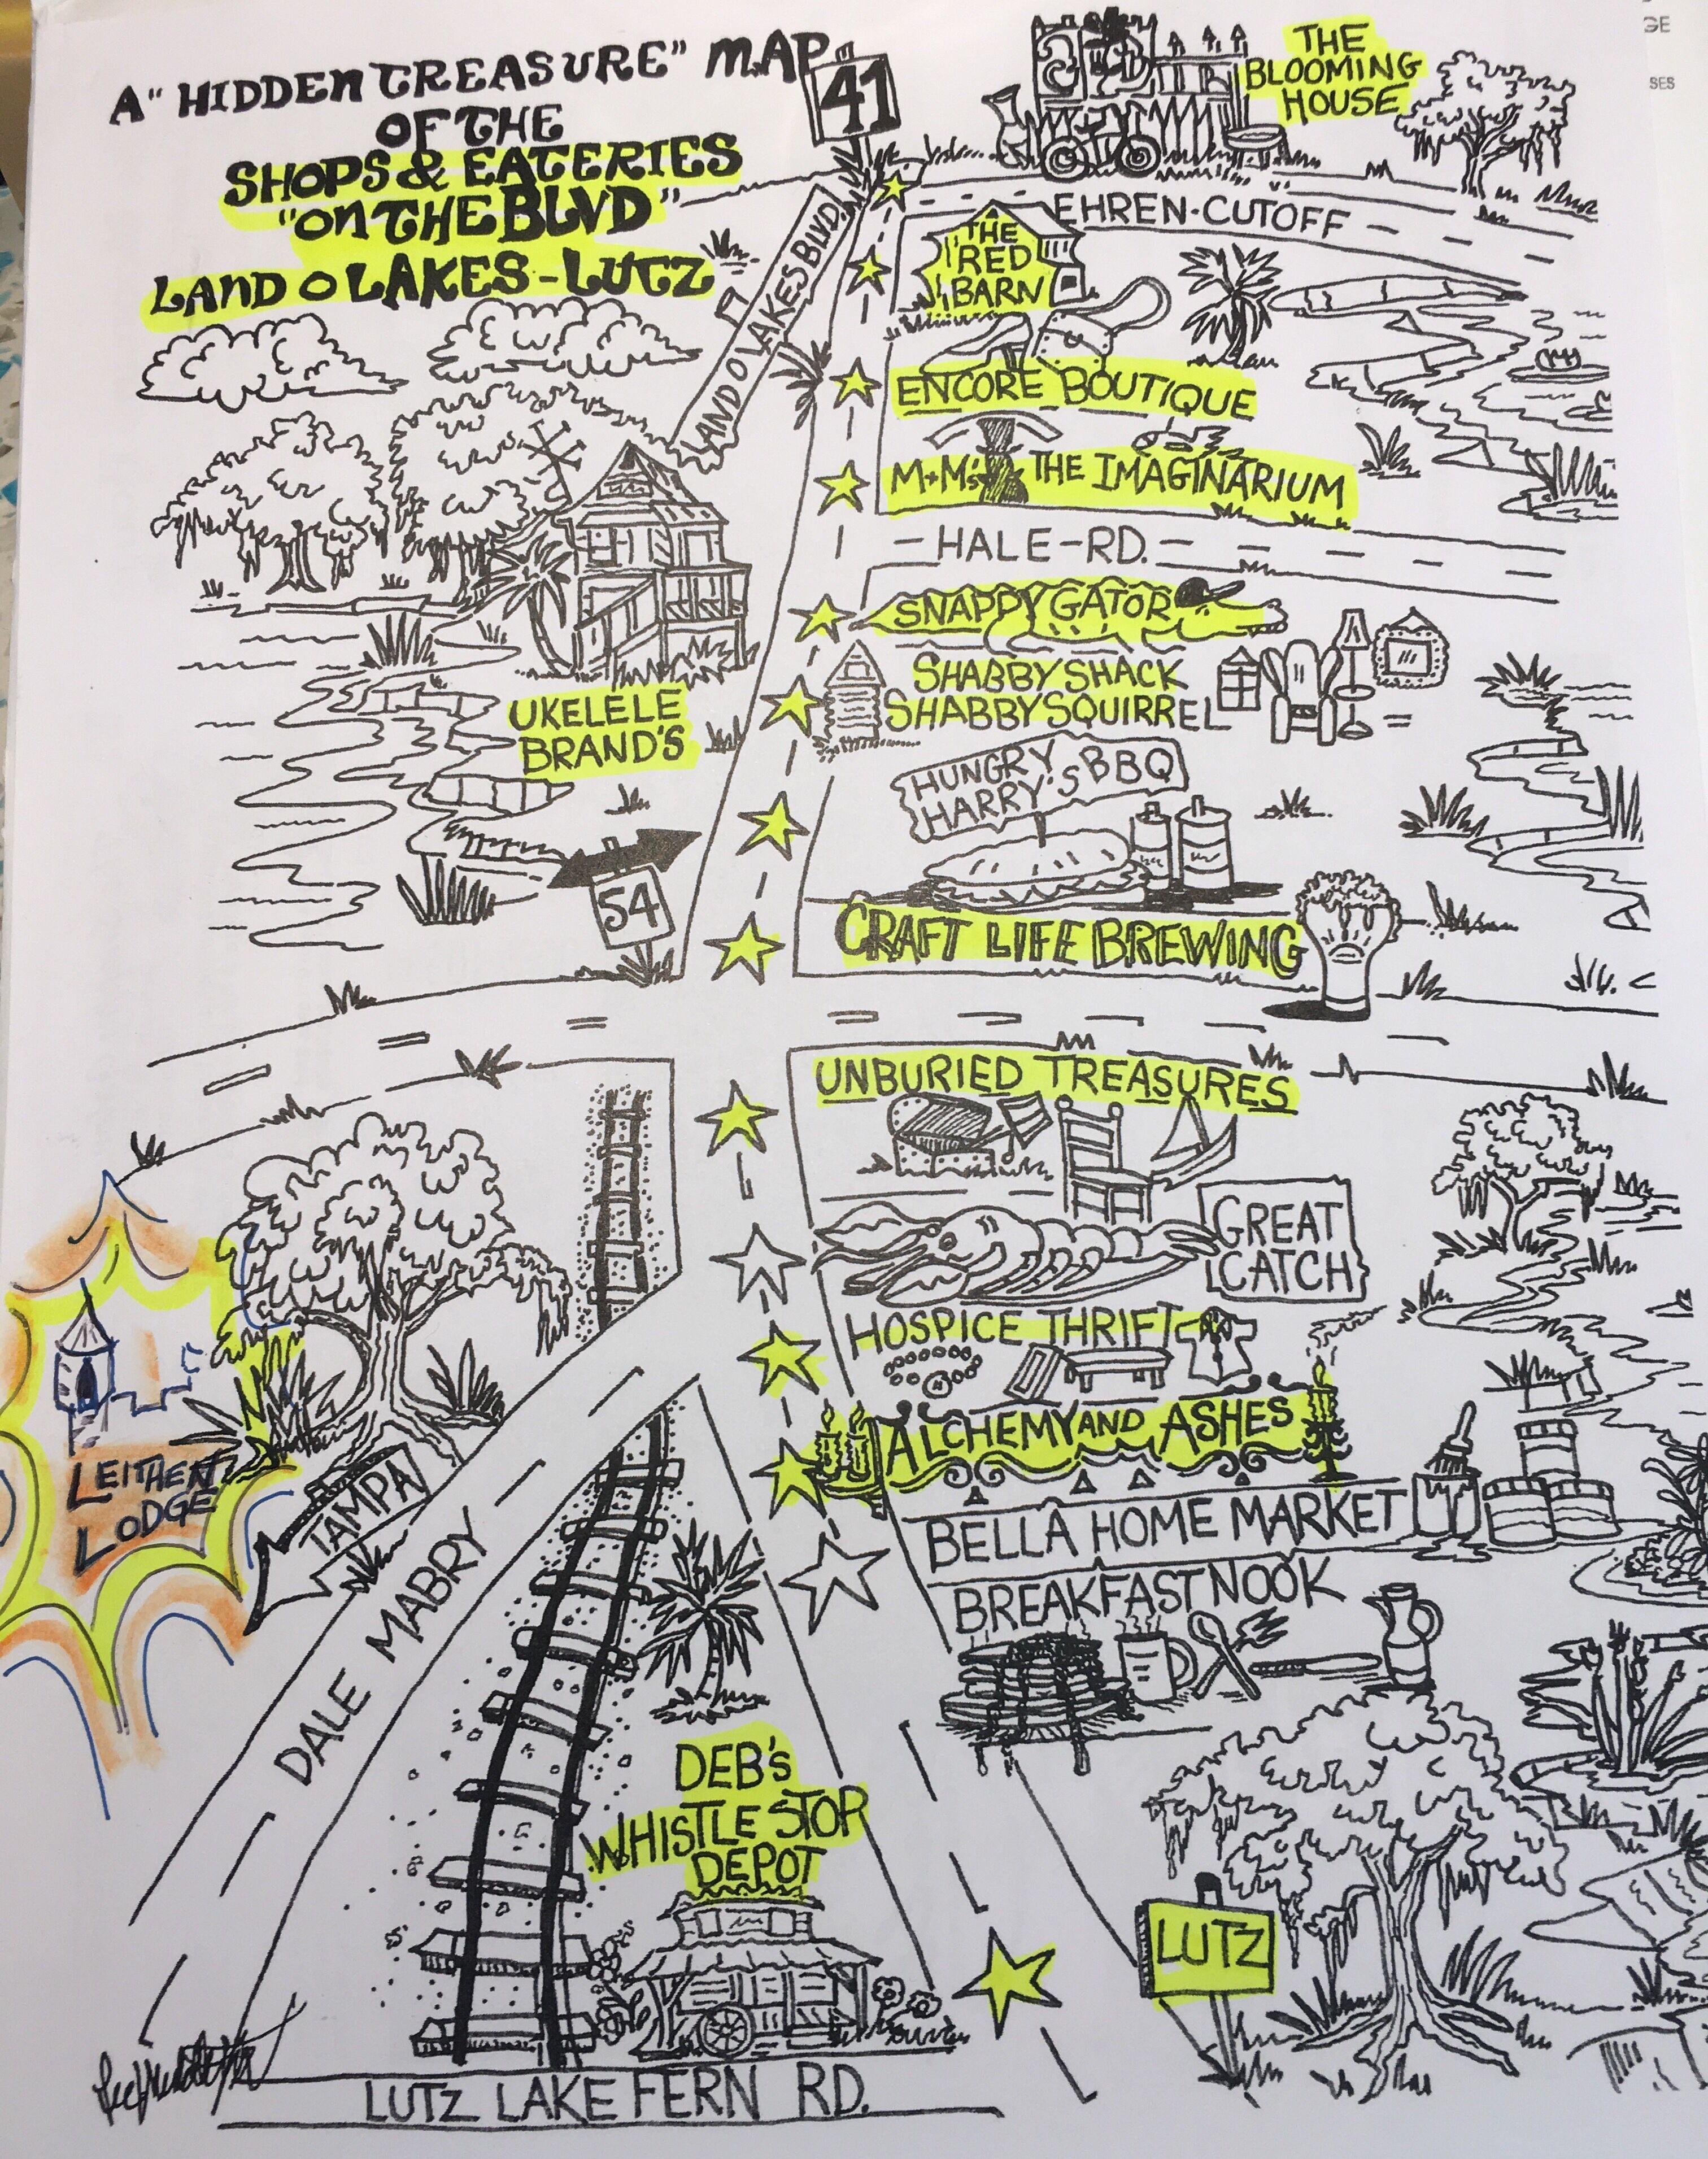 A "HIDDEN TREASURE" MAP
OF THE
SHOPS & EATERIES
"ON THE BLVD"
LAND O LAKES - LUTZ
41
THE
BLOOMING
HOUSE
GE
SES
EHREN-CUTOFF
LAND O LAKES BLVD.
THE
RED
BARN
ENCORE BOUTIQUE
M+M's THE IMAGINARIUM
-HALE-RD.-
SNAPPY GATOR
SHABBY SHACK
SHABBY SQUIRREL
UKELELE
BRAND'S
HUNGRY
HARRY'S BBQ
54
CRAFT LIFE BREWING
UNBURIED TREASURES
GREAT
CATCH
HOSPICE THRIFT
ALCHEMY AND ASHES
LEITHEN
LODGE
TAMPA
DALE MABRY
BELLA HOME MARKET
BREAKFAST NOOK
DEB'S
WHISTLE STOP
DEPOT
LUTZ
LUTZ LAKE FERN RD.